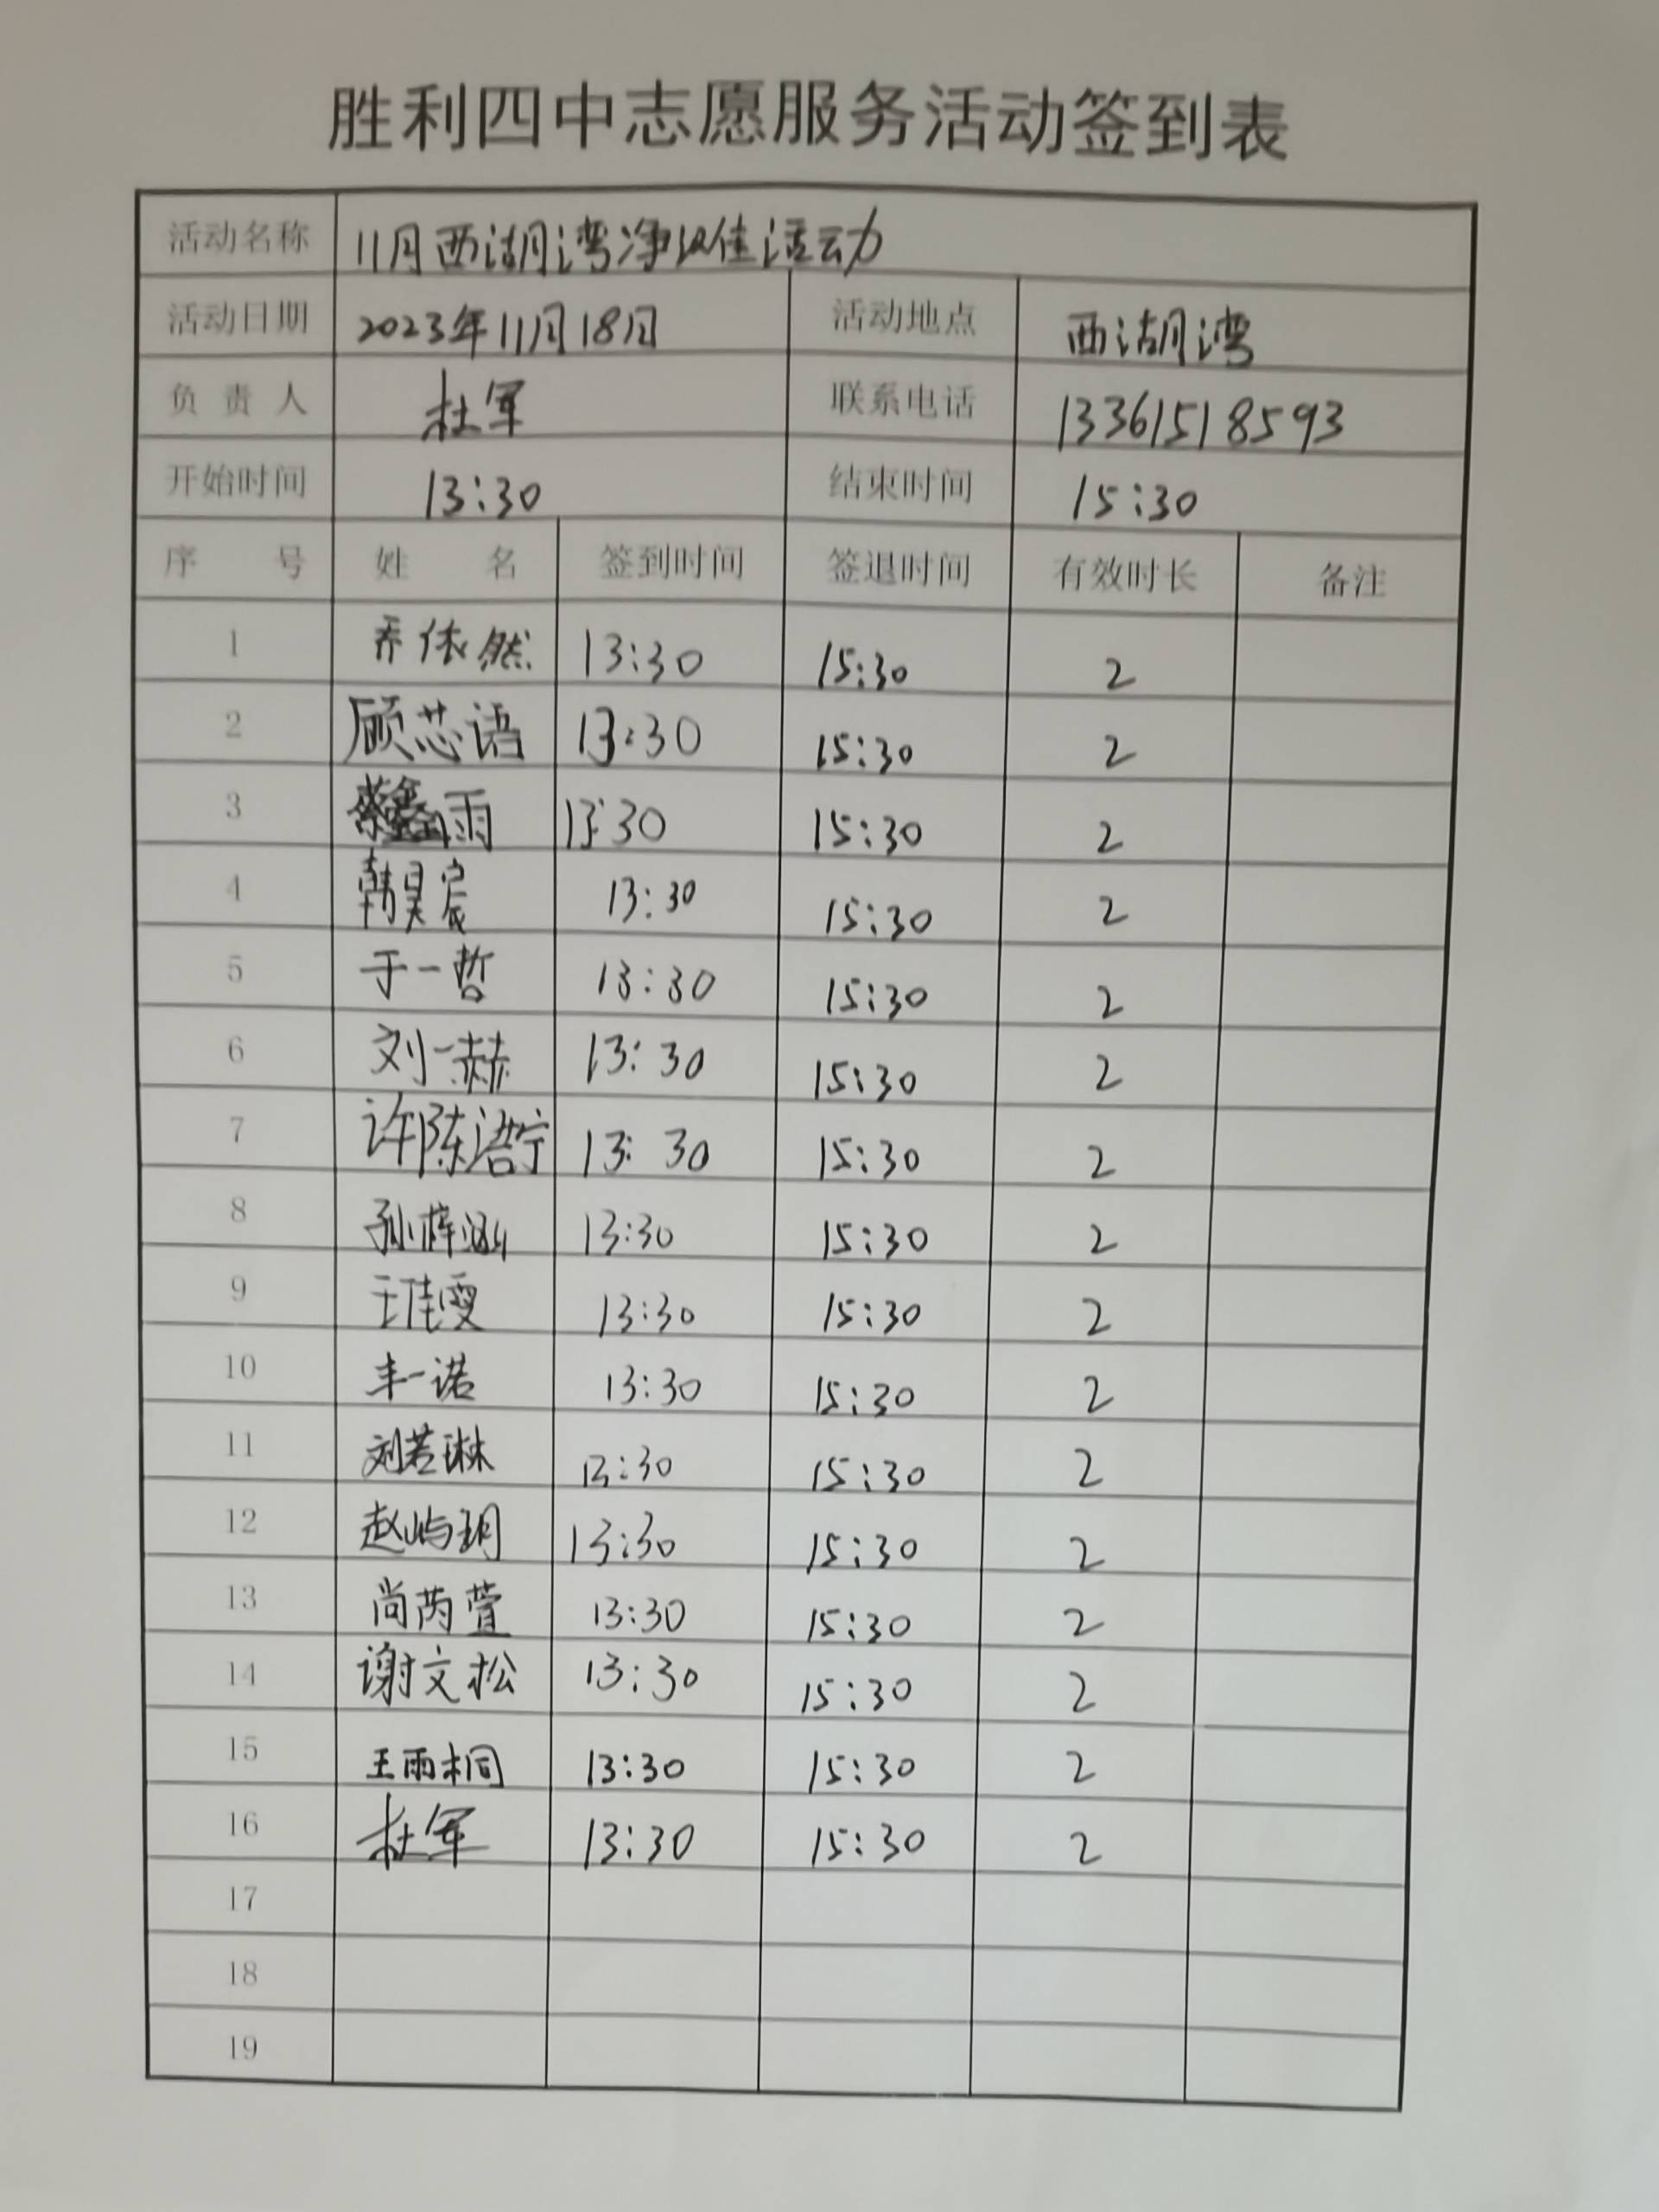 胜利四中志愿服务活动签到表
活动名称 11月西湖湾净滩活动
活动日期 2023年11月18日 活动地点 西湖湾
负责人 杜军 联系电话 13361518593
开始时间 13:30 结束时间 15:30
序号 姓名 签到时间 签退时间 有效时长 备注
1 乔依然 13:30 15:30 2
2 顾芯语 13:30 15:30 2
3 蔡鑫雨 13:30 15:30 2
4 韩昊宸 13:30 15:30 2
5 于一哲 13:30 15:30 2
6 刘一赫 13:30 15:30 2
7 许陈浯宁 13:30 15:30 2
8 孙梓涵 13:30 15:30 2
9 王佳雯 13:30 15:30 2
10 丰一诺 13:30 15:30 2
11 刘若琳 13:30 15:30 2
12 赵屿玥 13:30 15:30 2
13 尚芮萱 13:30 15:30 2
14 谢文松 13:30 15:30 2
15 王雨桐 13:30 15:30 2
16 杜军 13:30 15:30 2
17
18
19